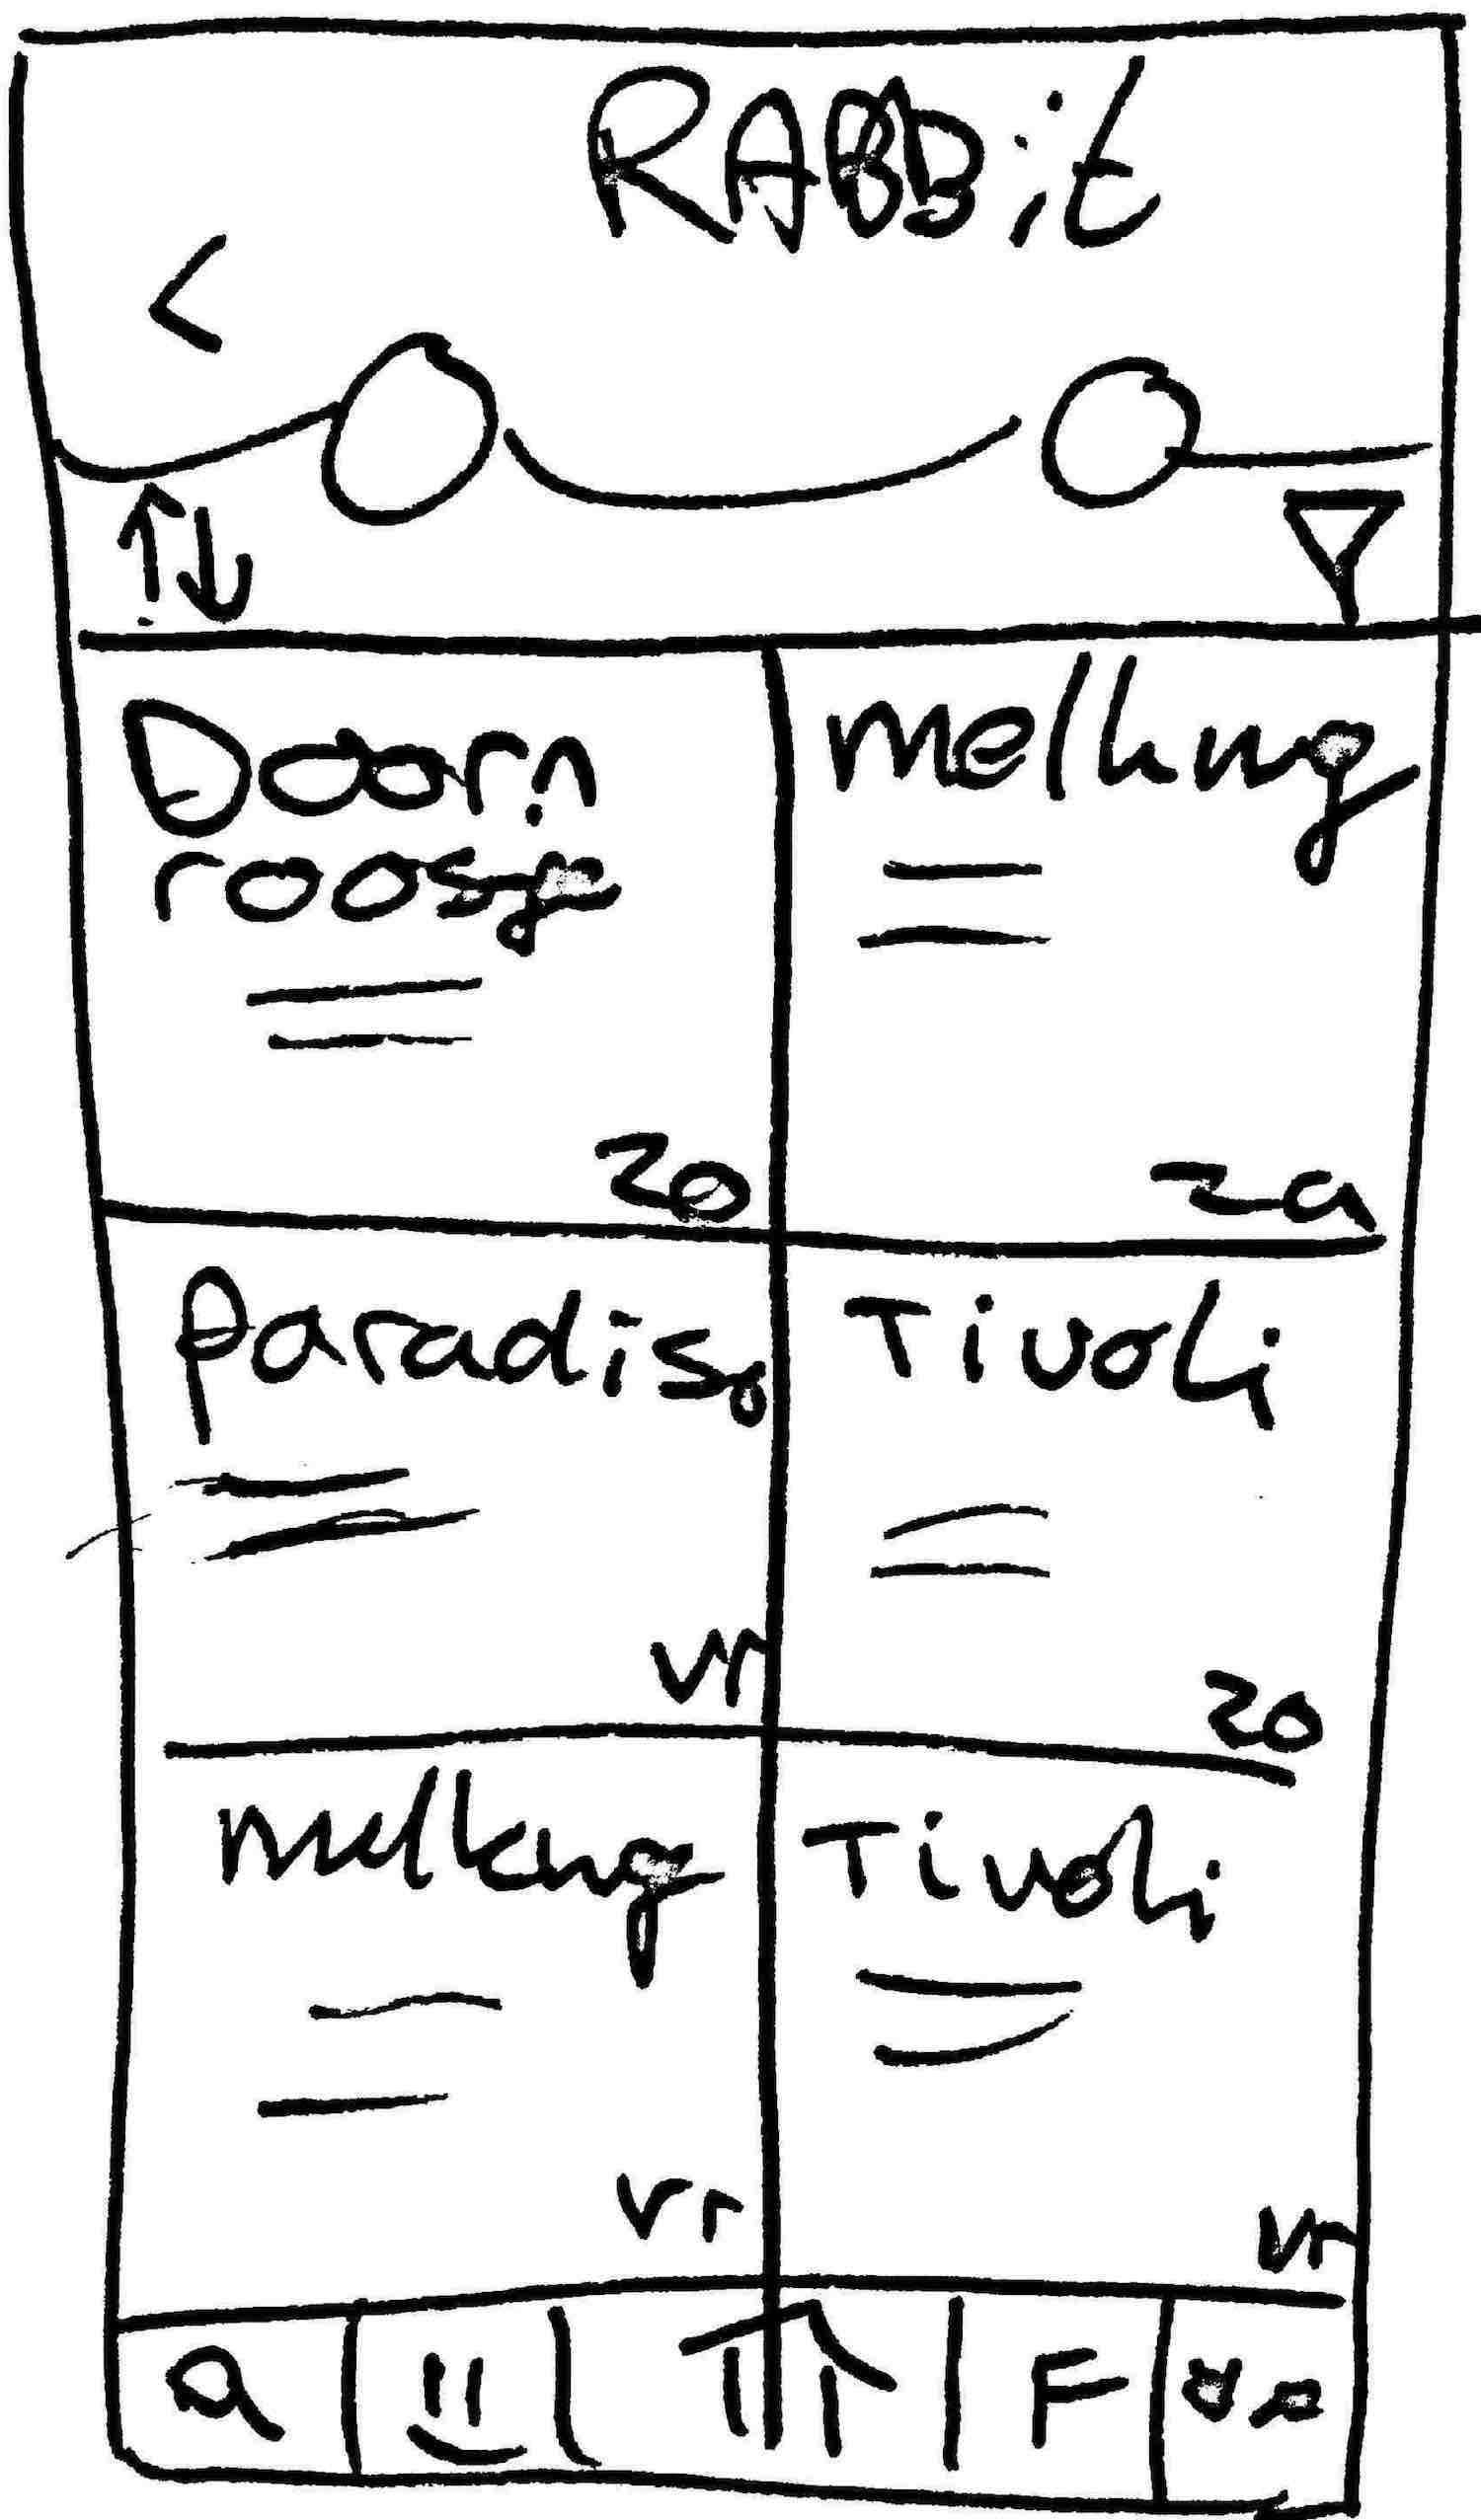 RABBit
Doorn
roosje
melkweg
zo
za
paradiso
Tivoli
vr
zo
melkweg
Tivoli
vr
vr
F